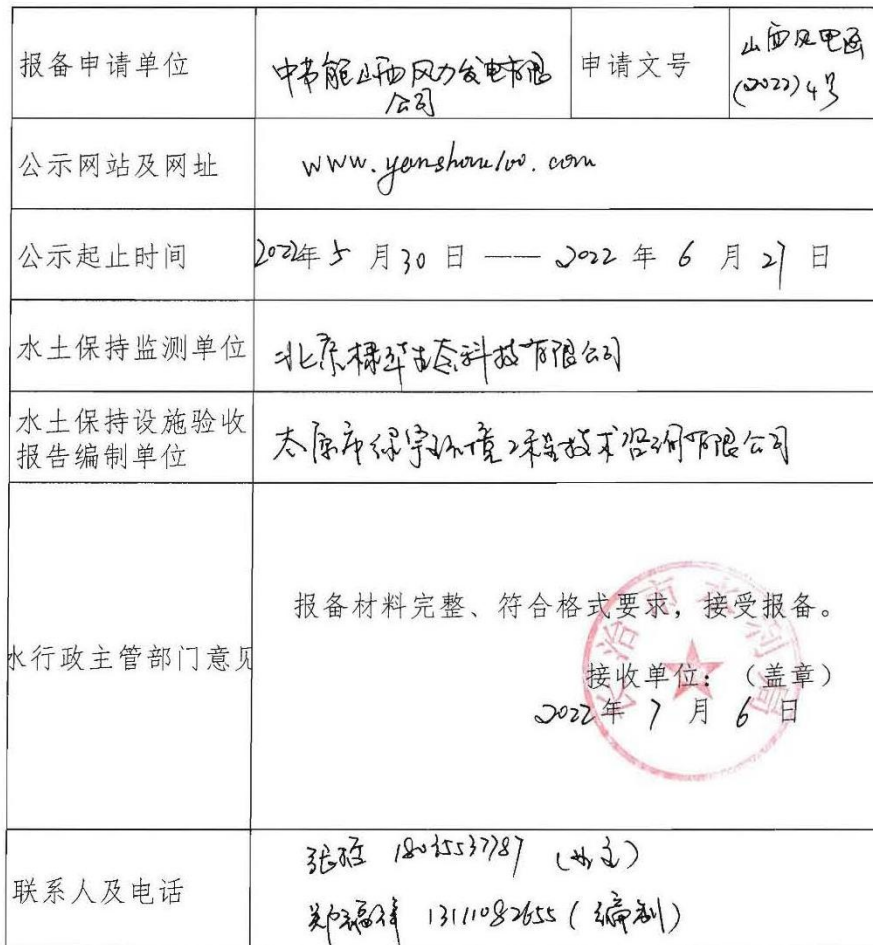 报备申请单位
中节能山西风力发电有限
公司
申请文号
山西风电函
(2022)4号
公示网站及网址
www.yanshou100.com
公示起止时间
2022年5月30日 —— 2022年6月27日
水土保持监测单位
北京 生态科技有限公司
水土保持设施验收
报告编制单位
太原市绿宇环境工程技术咨询有限公司
水行政主管部门意见
报备材料完整、符合格式要求，接受报备。
接收单位：（盖章）
2022年7月6日
长治市水利局
联系人及电话
张 18035537787（业主）
郑福祥 13111082655（编制）